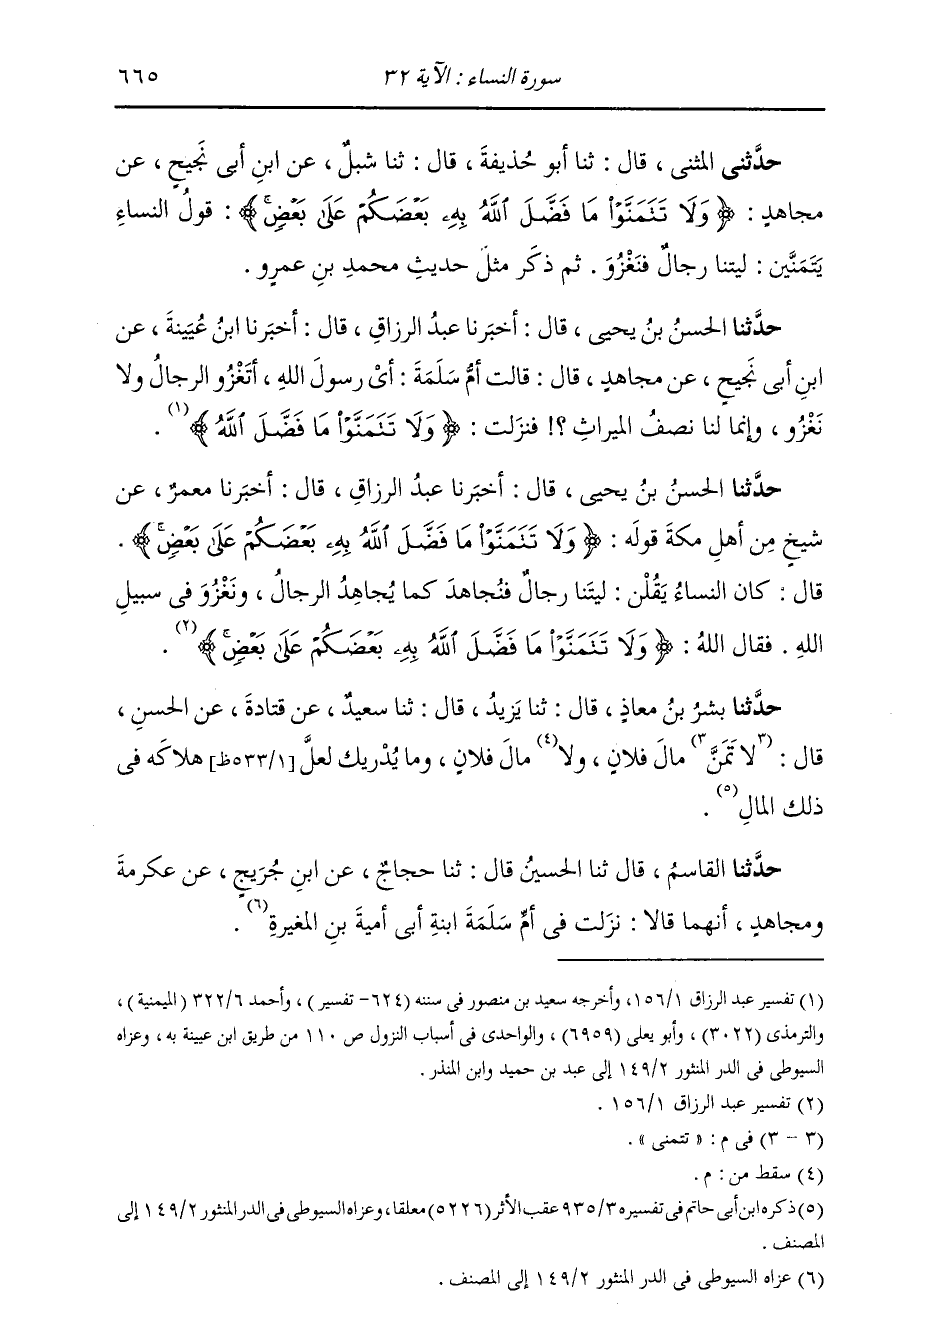 سورة النساء : الآية ٣٢ ٦٦٥
حدَّثنى المثنى ، قال : ثنا أبو حُذيفةَ ، قال : ثنا شبلٌ ، عن ابنِ أبى نَجيحٍ ، عن
مجاهدٍ : ﴿ وَلَا تَتَمَنَّوْا۟ مَا فَضَّلَ ٱللَّهُ بِهِۦ بَعْضَكُمْ عَلَىٰ بَعْضٍۚ ﴾ : قولُ النساءِ
يَتَمَنَّين : ليتنا رجالٌ فنَغْزُوَ . ثم ذكَر مثلَ حديثِ محمدِ بنِ عمرٍو .
حدَّثنا الحسنُ بنُ يحيى ، قال : أخبَرنا عبدُ الرزاقِ ، قال : أخبَرنا ابنُ عُيَينةَ ، عن
ابنِ أبى نَجيحٍ ، عن مجاهدٍ ، قال : قالت أمُّ سَلَمَةَ : أىْ رسولَ اللهِ ، أتَغْزُو الرجالُ ولا
نَغْزُو ، وإنما لنا نصفُ الميراثِ ؟! فنزَلت : ﴿ وَلَا تَتَمَنَّوْا۟ مَا فَضَّلَ ٱللَّهُ ﴾(١) .
حدَّثنا الحسنُ بنُ يحيى ، قال : أخبَرنا عبدُ الرزاقِ ، قال : أخبَرنا معمرٌ ، عن
شيخٍ مِن أهلِ مكةَ قولَه : ﴿ وَلَا تَتَمَنَّوْا۟ مَا فَضَّلَ ٱللَّهُ بِهِۦ بَعْضَكُمْ عَلَىٰ بَعْضٍۚ ﴾ .
قال : كان النساءُ يَقُلْن : ليتَنا رجالٌ فنُجاهدَ كما يُجاهِدُ الرجالُ ، ونَغْزُوَ فى سبيلِ
اللهِ . فقال اللهُ : ﴿ وَلَا تَتَمَنَّوْا۟ مَا فَضَّلَ ٱللَّهُ بِهِۦ بَعْضَكُمْ عَلَىٰ بَعْضٍۚ ﴾(٢) .
حدَّثنا بشرُ بنُ معاذٍ ، قال : ثنا يَزيدُ ، قال : ثنا سعيدٌ ، عن قتادةَ ، عن الحسنِ ،
قال : (٣لا تَمَنَّ٣) مالَ فلانٍ ، ولا(٤) مالَ فلانٍ ، وما يُدْريك لعلَّ [٥٣٣/١ظ] هلاكَه فى
ذلك المالِ(٥) .
حدَّثنا القاسمُ ، قال ثنا الحسينُ قال : ثنا حجاجٌ ، عن ابنِ جُرَيجٍ ، عن عكرمةَ
ومجاهدٍ ، أنهما قالا : نزَلت فى أمِّ سَلَمَةَ ابنةِ أبى أميةَ بنِ المغيرةِ(٦) .
(١) تفسير عبد الرزاق ١٥٦/١، وأخرجه سعيد بن منصور فى سننه (٦٢٤- تفسير) ، وأحمد ٣٢٢/٦ (الميمنية) ،
والترمذى (٣٠٢٢) ، وأبو يعلى (٦٩٥٩) ، والواحدى فى أسباب النزول ص ١١٠ من طريق ابن عيينة به ، وعزاه
السيوطى فى الدر المنثور ١٤٩/٢ إلى عبد بن حميد وابن المنذر .
(٢) تفسير عبد الرزاق ١٥٦/١ .
(٣ – ٣) فى م : « تتمنى » .
(٤) سقط من : م .
(٥) ذكره ابن أبى حاتم فى تفسيره ٩٣٥/٣ عقب الأثر (٥٢٢٦) معلقا، وعزاه السيوطى فى الدر المنثور ١٤٩/٢ إلى
المصنف .
(٦) عزاه السيوطى فى الدر المنثور ١٤٩/٢ إلى المصنف .